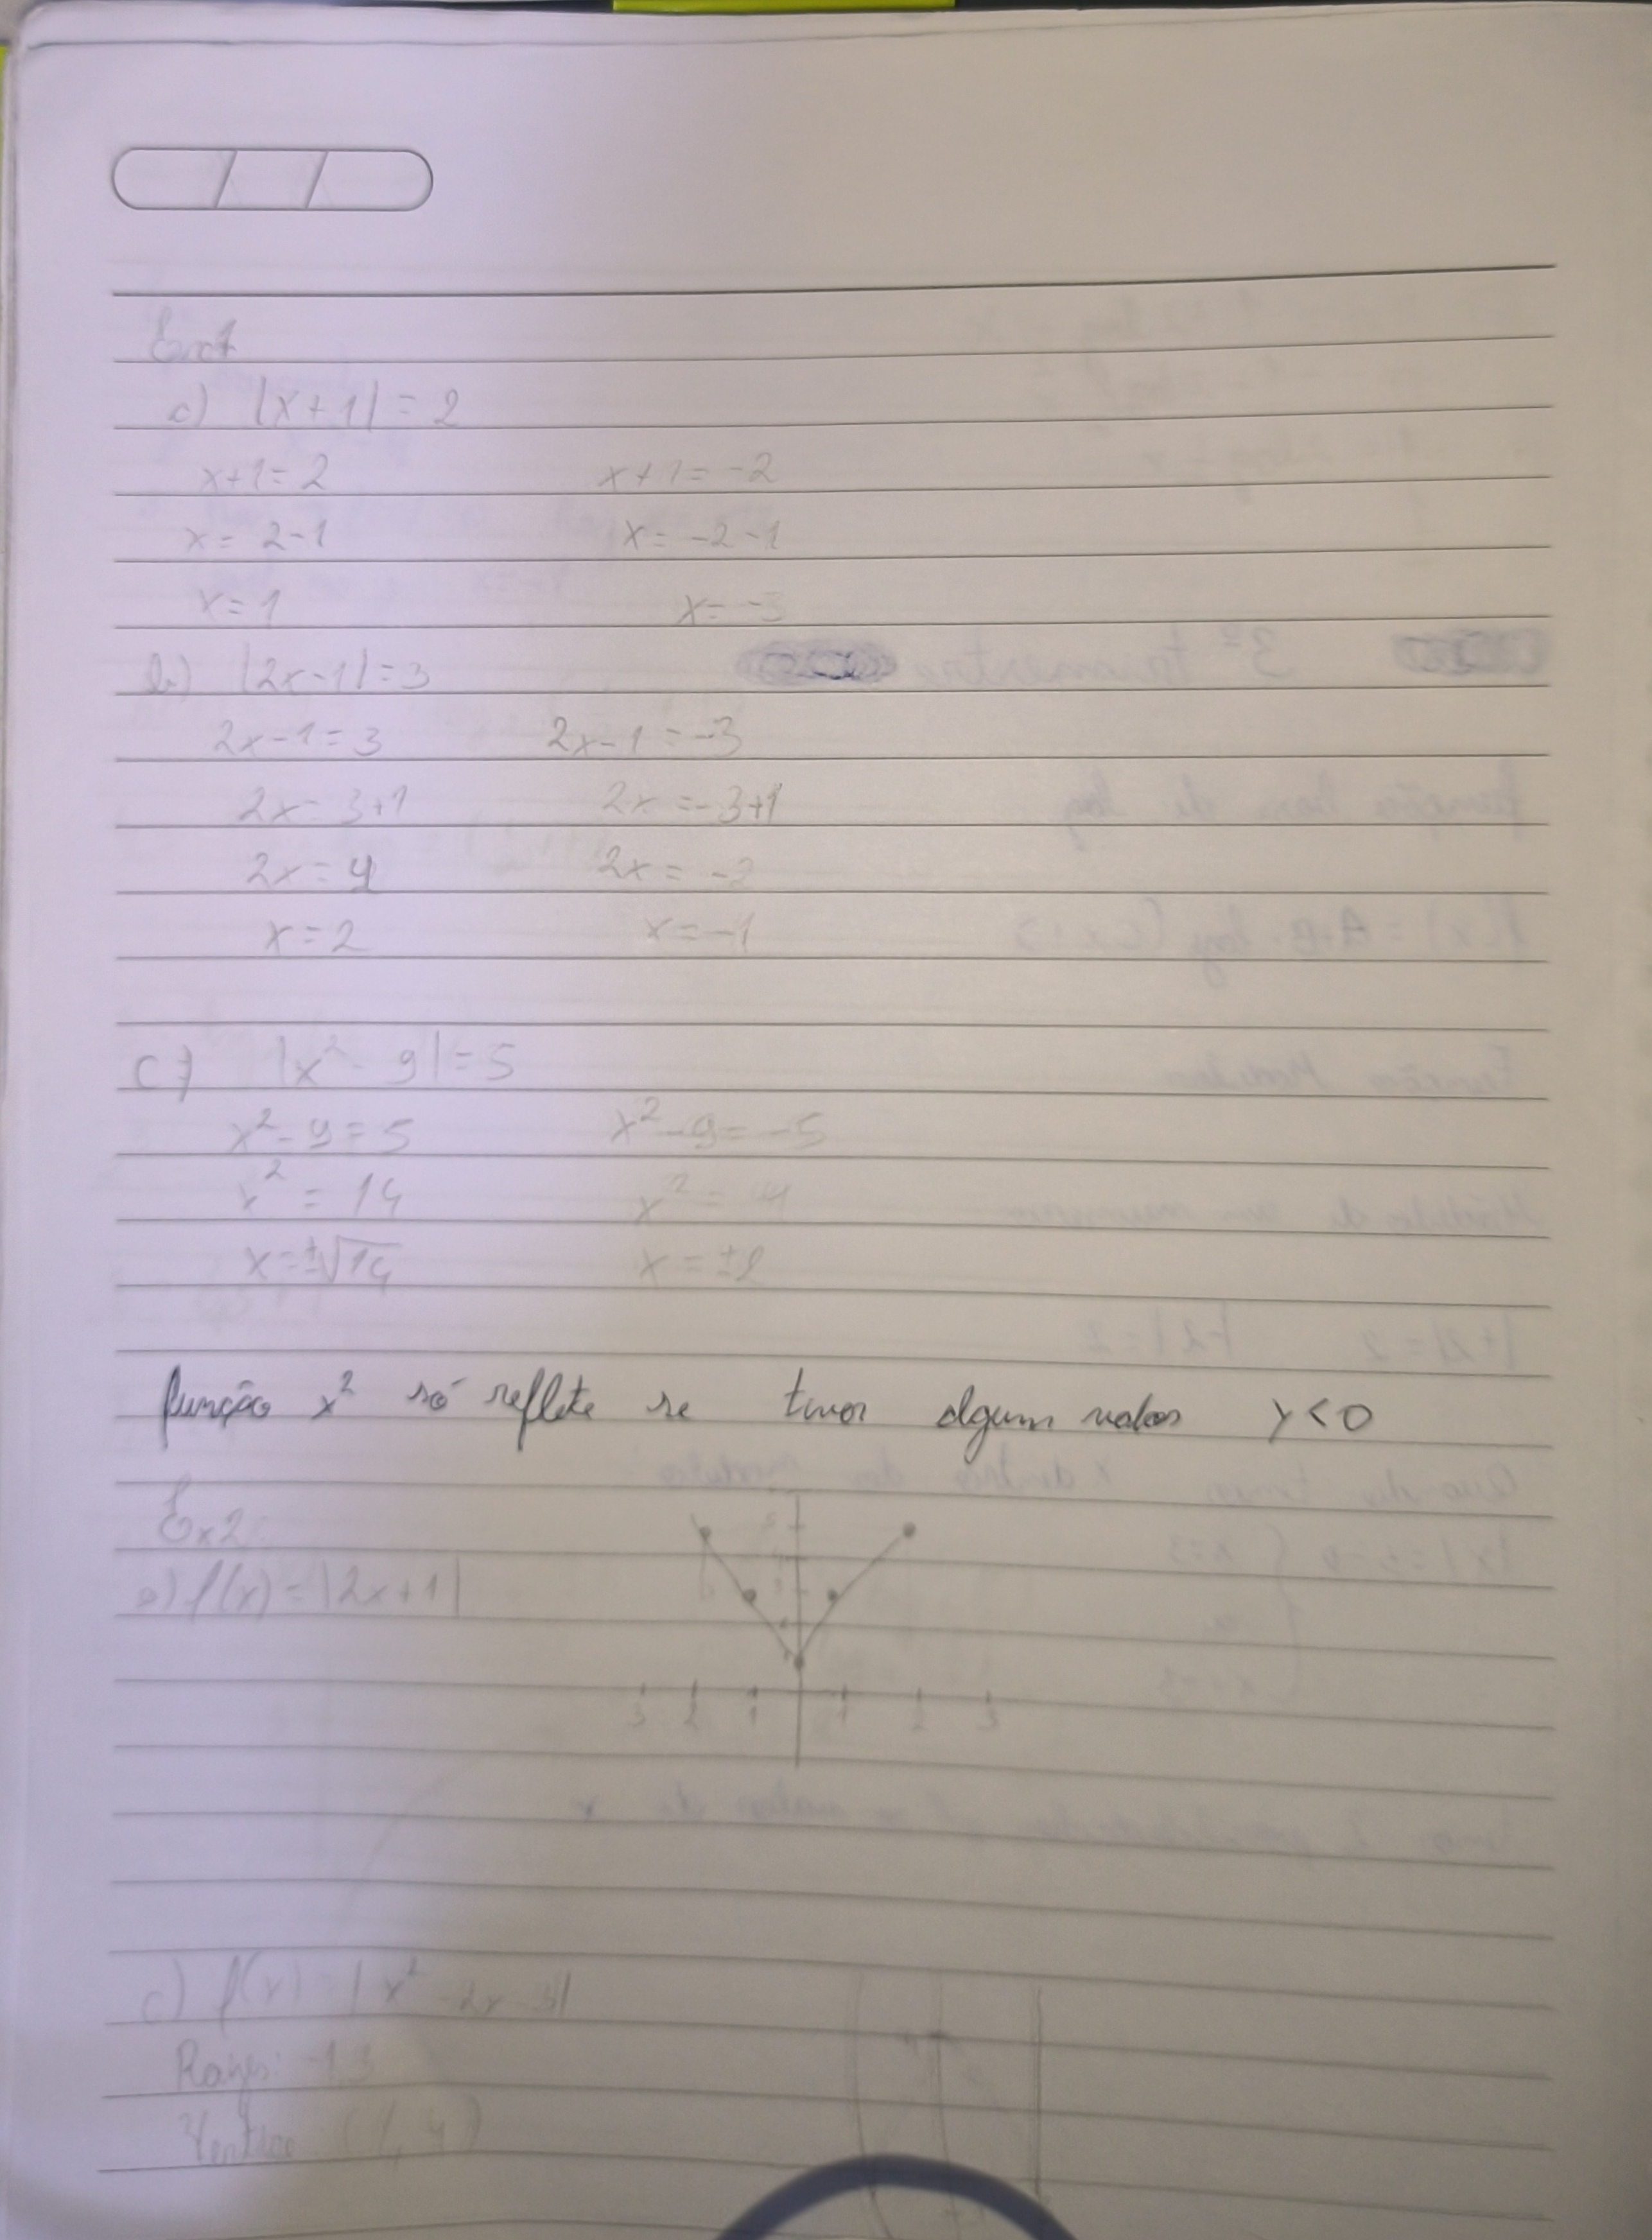 Ex1
a) |x+1| = 2
x+1 = 2 x+1 = -2
x = 2-1 x = -2-1
x = 1 x = -3
b) |2x-1| = 3
2x-1 = 3 2x-1 = -3
2x = 3+1 2x = -3+1
2x = 4 2x = -2
x = 2 x = -1
c) |x² - 9| = 5
x² - 9 = 5 x² - 9 = -5
x² = 14 x² = 4
x = ±√14 x = ±2
função x² só reflete se tiver algum valor y < 0
Ex2
a) f(x) = |2x+1|
5
3
1
3 2 1 1 2 3
c) f(x) = |x² - 2x - 3|
Raízes: -1, 3
Vertice (1, 4)